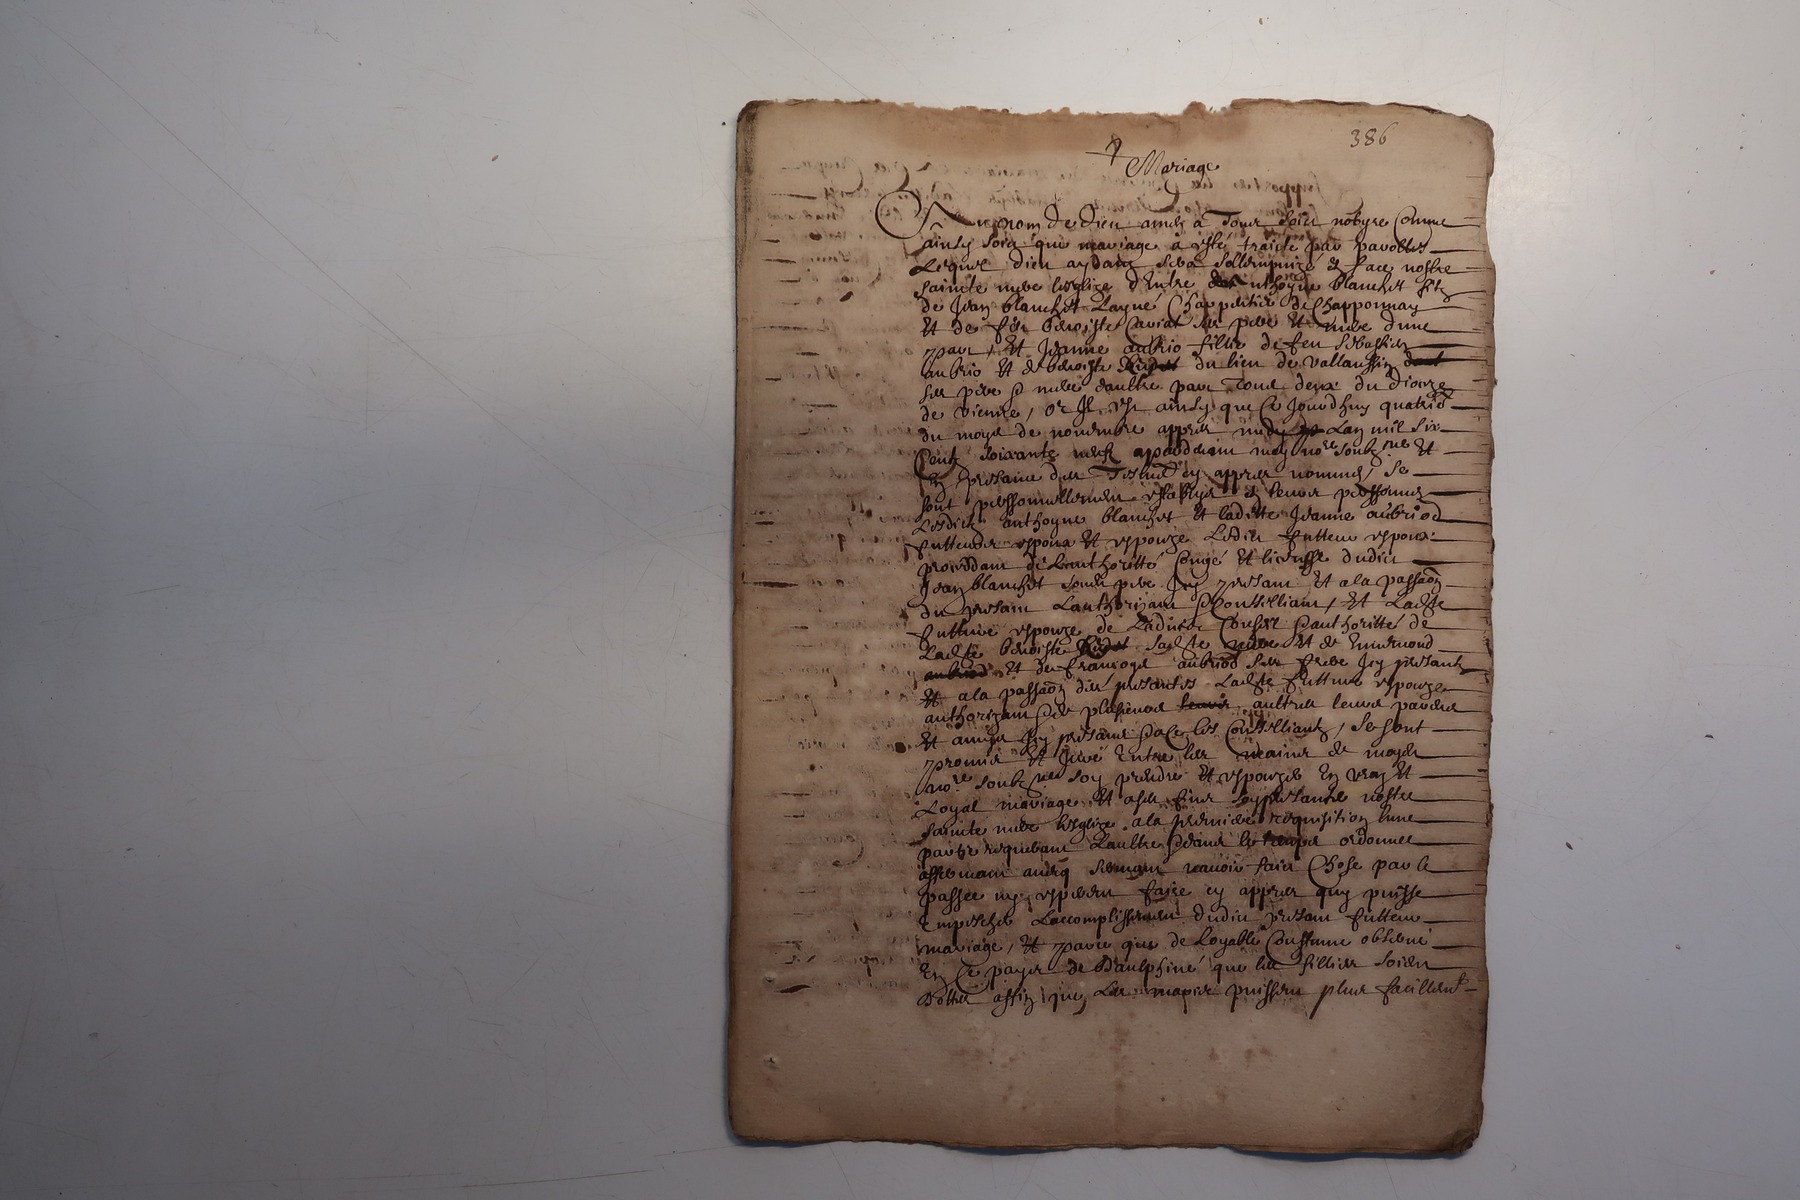 386
Mariage
Au nom de dieu amen a Tous soict notoyre Comme
ainsy soict que mariage à esté traicte par parolles
Lequel dieu aydant sera sollempnizé en face nostre
saincte mere lesglize d'Entre anthoyne blanchet filz
de Jean blanchet Layné Charpentier de Chapponnay
Et de feu benoiste Caviat ses pere Et mere dune
part, Et Jeanne aubrio fillie de feu Sebastien
aubrio Et de benoiste du lieu de vallanssin
ses pere et mere daultre part Tous deux du dioceze
de vienne, or Il est ainsy que Ce Jourdhuy quatrie
du moys de novembre appres midy Lan mil six
Centz soixante neufz apardevant moy nore soubzne Et
En presance des Tesmoingz cy appres nommes, se
sont personnellement establys en leurs personnes
Lesdictz anthoyne blanchet Et laditte Jeanne aubriod
futteurs espoux Et espouze Ledict futteur espoux
proceddant de Lauthoritté Congé Et licensse dudict
Jean blanchet sondt pere Icy presant Et a la passaon
du presant Lauthorizant et Conseilliant, Et Ladte
futture espouze de Ladvis Conseil et authoritté de
Ladte benoiste sadte mere Et de Enemond
aubriod Et de francoys aubriod ses frere Icy presantz
Et a la passaon des presantes Ladte futture espouze
authorizant et de plusieurs aultres leurs parans
Et amys Icy presans et a Ce les Conseilliantz, se sont
promis Et Juré Entre les mains de moydt
nore soubzne soy prendre Et espouzer En vray Et
Loyal mariage Et a ses fins soy presanter nostre
saincte mere lesglize a la premiere requisition lune
partie requerant Laultre et dans le temps ordonner
affermant avecq serment navoir faict Chose par le
passée ny esperent faire cy appres quy puisse
Empescher Laccomplissement dudict presant futteur
mariage, Et parce que de Loyable Coustume observé
En Ce pays de Daulphiné que les fillies soient
Dottées affin que Les maris puissent plus facillemt